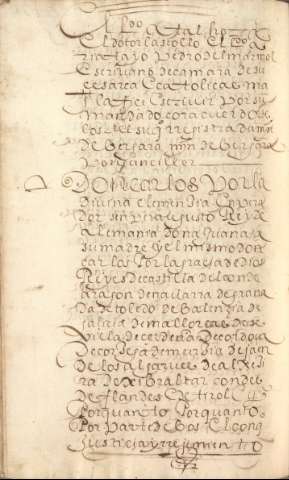 El dotor
Pedro del marmol
Escrivano de camara de su
cesarea E catolicas ma
la fize escrevir por su
mandado con acuerdo de
los del su registrada
de Vergara mñ de Vergara
Por chanciller
DON carlos Por la
Divina clemencia Enpera
dor senper augusto Rey de
alemania doña Juana
su madre y el mismo don
carlos Por la gracia de dios
Reyes de castilla de leon de
aragon de navarra de grana
da de toledo de balencia de
galizia de mallorcas de se
villa de cerdeña de cordova
de corcega de murcia de jaen
de los algarves de algezi
ra de Gibraltar condes
de flandes E de tirol
Por quanto Por quanto
Por parte de bos El conçejo
justicia y regimiento